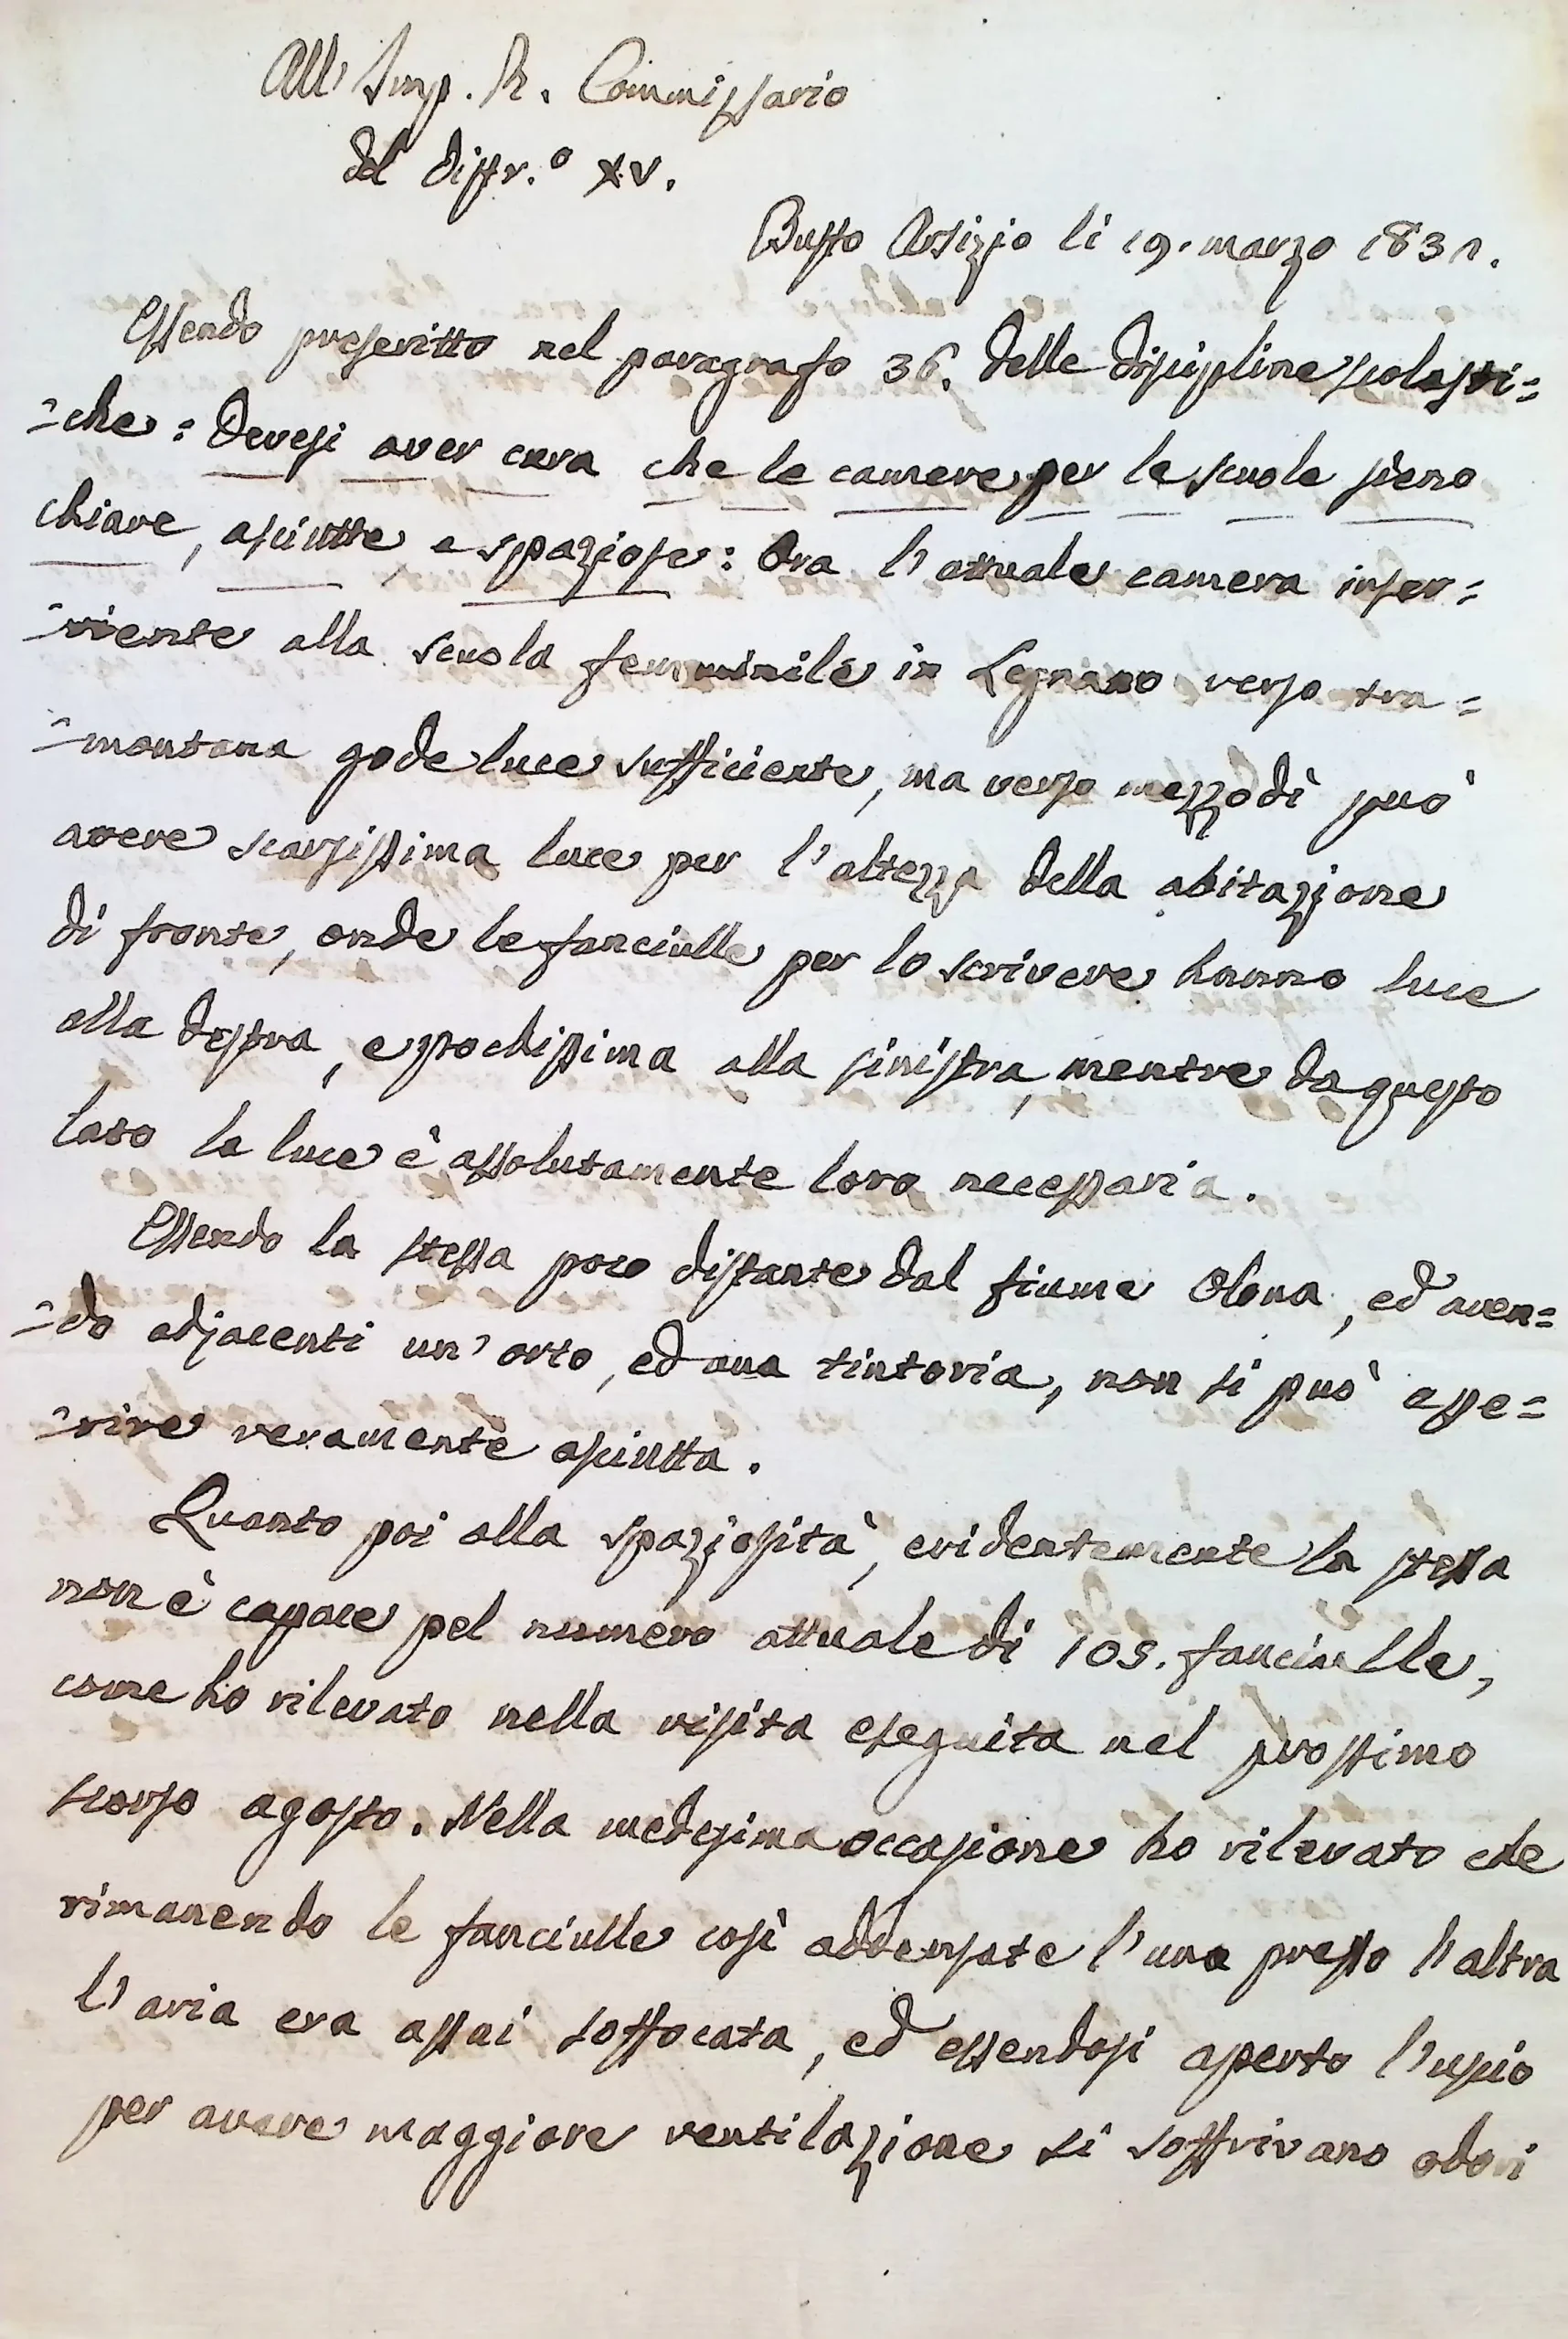 All' Imp. R. Commissario
del distr.º XV.
Busto Arsizio li 19. marzo 1831.
Essendo prescritto nel paragrafo 36. delle discipline scolasti=
=che: Devesi aver cura che le camere per le scuole sieno
chiare, asciutte e spaziose: Ora l'attuale camera inser=
=viente alla scuola femminile in Legnano verso tra=
=montana gode luce sufficiente, ma verso mezzodì può
avere scarsissima luce per l'altezza della abitazione
di fronte, onde le fanciulle per lo scrivere hanno luce
alla destra, e pochissima alla sinistra, mentre da questo
lato la luce è assolutamente loro necessaria.
Essendo la stessa poco distante dal fiume Olona, ed aven=
=do adjacenti un' orto, ed una tintoria, non si può asse=
=rire veramente asciutta.
Quanto poi alla spaziosità, evidentemente la stessa
non è capace pel numero attuale di 105. fanciulle,
come ho rilevato nella visita eseguita nel prossimo
scorso agosto. Nella medesima occasione ho rilevato che
rimanendo le fanciulle così addensate l'una presso l'altra
l'aria era assai soffocata, ed essendosi aperto l'uscio
per avere maggiore ventilazione si soffrivano odori